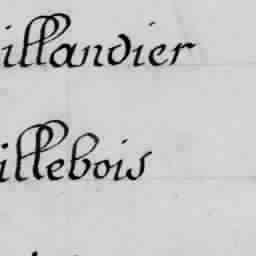 illandier
illebois